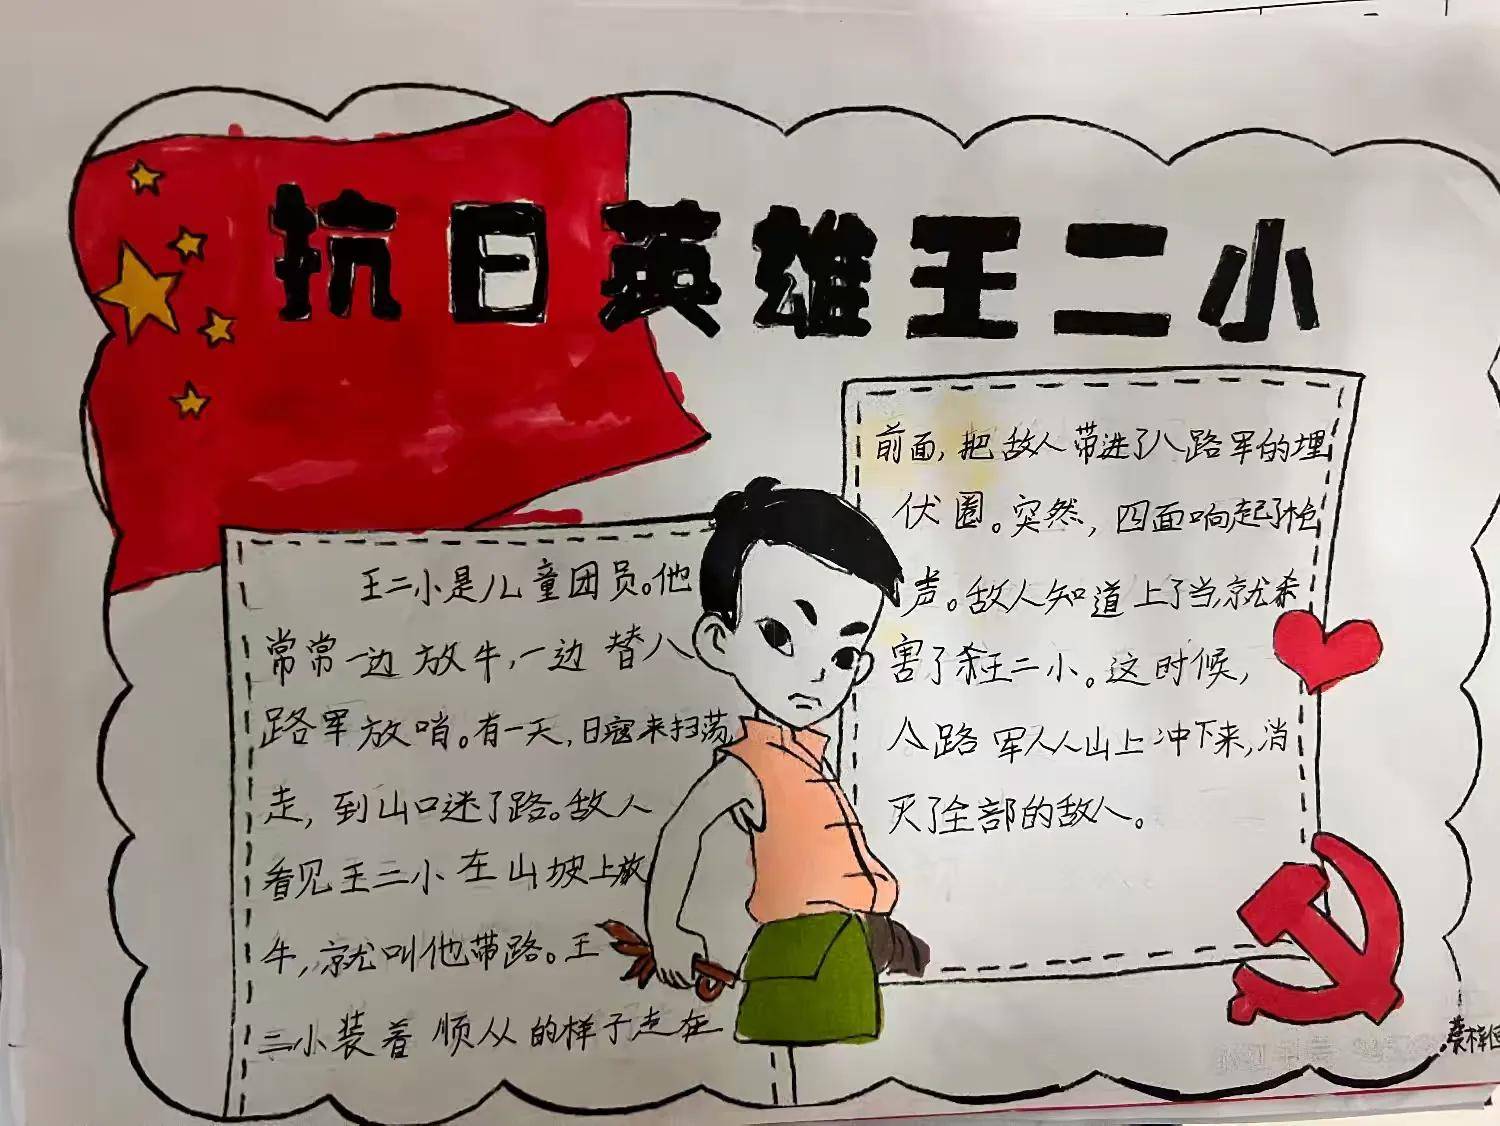 抗日英雄王二小
王二小是儿童团员。他
常常一边放牛,一边替八
路军放哨。有一天,日寇来扫荡
走,到山口迷了路。敌人
看见王二小在山坡上放
牛,就叫他带路。王
二小装着顺从的样子走在
前面,把敌人带进了八路军的埋
伏圈。突然,四面响起了枪
声。敌人知道上了当,就杀
害了王二小。这时候,
八路军从山上冲下来,消
灭了全部的敌人。